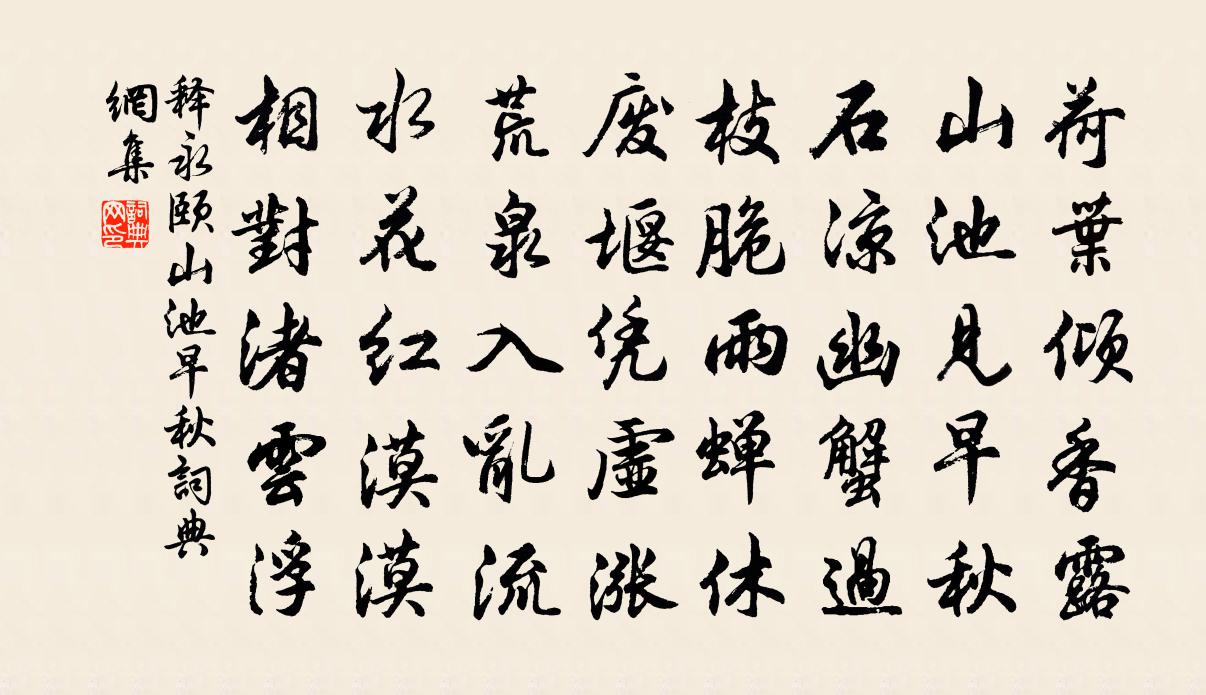 荷葉倾香露
山池見早秋
石涼幽蟹過
枝脆雨蝉休
废堰凭虚漲
荒泉入亂流
水花红漠漠
相對渚雲浮
释永頤山池早秋詞典
網集
詞典网印